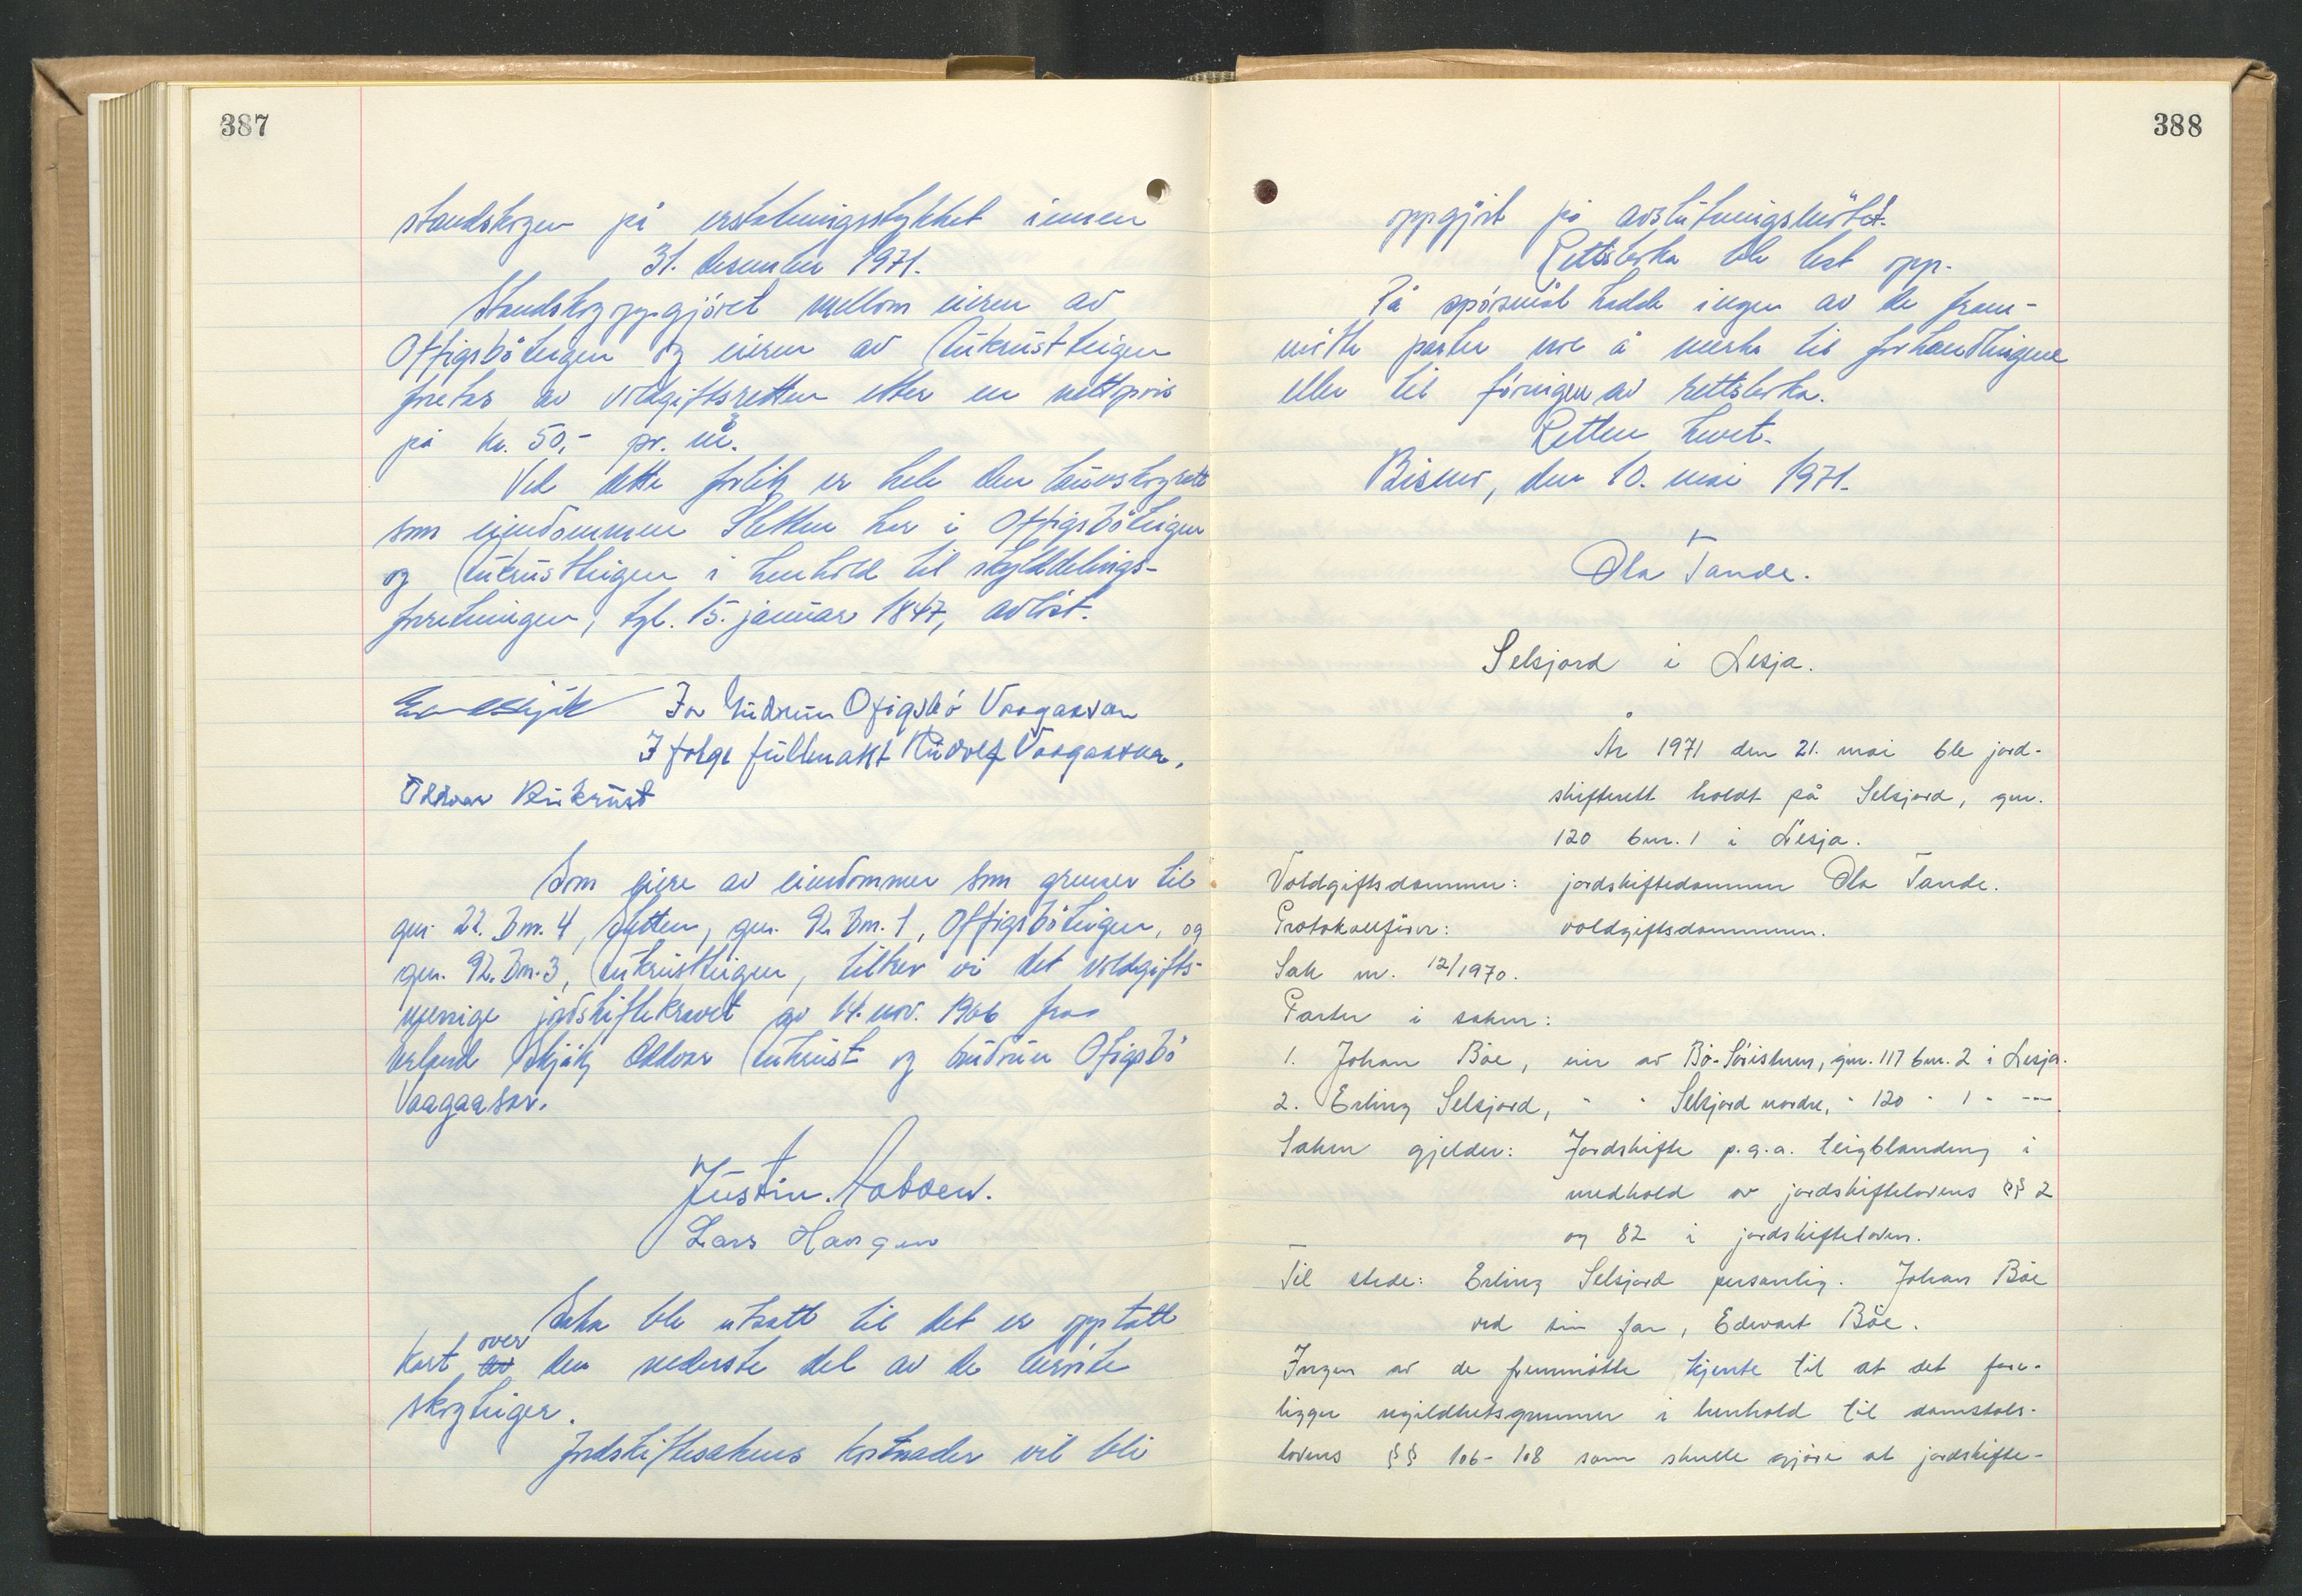 387
standskogen på erstatningsstykket innen
31. desember 1971.
Standskogoppgjöret mellom eieren av
Offigsböteigen og eieren av Rukrustteigen
foretas av voldgiftsretten etter en nettopris
på kr. 50,- pr. m³.
Ved dette forlik er hele den lauvskogrett
som eiendommen Sletten har i Offigsböteigen
og Rukrustteigen i henhold til skylddelings-
forretningen, tgl. 15. januar 1847, avlöst.
For Gudrun Ofigsbö Vaagaasar
I følge fullmakt Rudolf Vaagaasar.
Oddvar Rukrust
Som eiere av eiendommer som grenser til
gnr. 22. bnr. 4, Sletten, gnr. 92 bnr. 1, Offigsböteigen, og
gnr. 92. bnr. 3, Rukrustteigen, tiltrer vi det voldgifts-
messige jordskiftekravet av 14. nov. 1966 fra
Erland Skjåk, Oddvar Rukrust og Gudrun Ofigsbö
Vaagaasar.
Justin
Lars Haugen
Saka ble utsatt til det er opptatt
kart over av den nederste del av de berörte
skogteiger.
Jordskiftesakens kostnader vil bli
388
oppgjort på avslutningsmötet.
Rettsboka ble lest opp.
På spörsmål hadde ingen av de fram-
mötte parter noe å merke til forhandlingene
eller til föringen av rettsboka.
Retten hevet.
Bismo, den 10. mai 1971.
Ola Tande.
Selsjord i Lesja.
År 1971 den 21. mai ble jord-
skifterett holdt på Selsjord, gnr.
120 bnr. 1 i Lesja.
Voldgiftsdommer: jordskiftedommer Ola Tande.
Protokollförer: voldgiftsdommeren.
Sak nr. 12/1970.
Parter i saken:
1. Johan Böe, eier av Bö-Söristuen, gnr. 117 bnr. 2 i Lesja.
2. Erling Selsjord, " " Selsjord nordre, " 120 " 1 " ---
Saken gjelder: Jordskifte p.g.a. teigblanding i
medhold av jordskiftelovens §§ 2
og 82 i jordskifteloven.
Til stede: Erling Selsjord personlig. Johan Böe
ved sin far, Edvart Böe.
Ingen av de fremmötte kjente til at det fore-
ligger ugildhetsgrunner i henhold til domstols-
lovens §§ 106-108 som skulle gjöre at jordskifte-